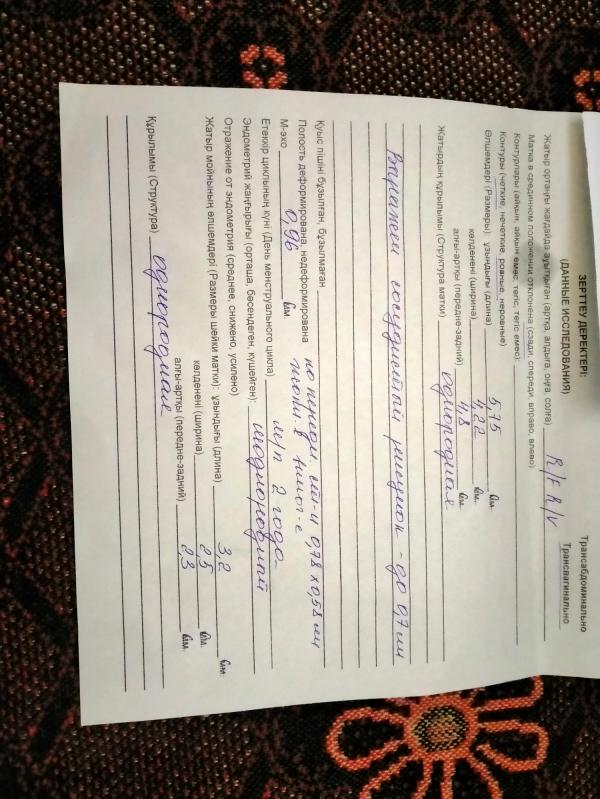 ЗЕРТТЕУ ДЕРЕКТЕРІ:
(ДАННЫЕ ИССЛЕДОВАНИЯ)
Трансабдоминально
Трансвагинально
Жатыр ортаңғы жағдайда ауытқыған (артқа, алдыға, оңға, солға) R/F R/V
Матка в срединном положении отклонена (сзади, спереди, вправо, влево)
Контурлары (айқын, айқын емес, тегіс, тегіс емес):
Контуры (четкие, нечеткие, ровные, неровные)
Өлшемдері (Размеры): ұзындығы (длина) 5,75 см.
көлденеңі (ширина) 4,22 см.
алғы-артқы (передне-задний) 4,8 см.
Жатырдың құрылымы (Структура матки) однородная
Выражен сосудистый рисунок - до 0,7 см
Қуыс пішіні бұзылған, бұзылмаған
Полость деформирована, недеформирована по перед. ст-и 0,78 х 0,58 см
М-эхо 0,96 см.
Етеккір циклының күні (День менструального цикла) м/п 2 года
Эндометрий жаңғырығы (орташа, бәсеңдеген, күшейген):
Отражение от эндометрия (среднее, снижено, усилено)
Жатыр мойнының өлшемдері (Размеры шейки матки): ұзындығы (длина) 3,2 см.
көлденеңі (ширина) 2,5 см.
алғы-артқы (передне-задний) 2,3 см.
Құрылымы (Структура) однородная